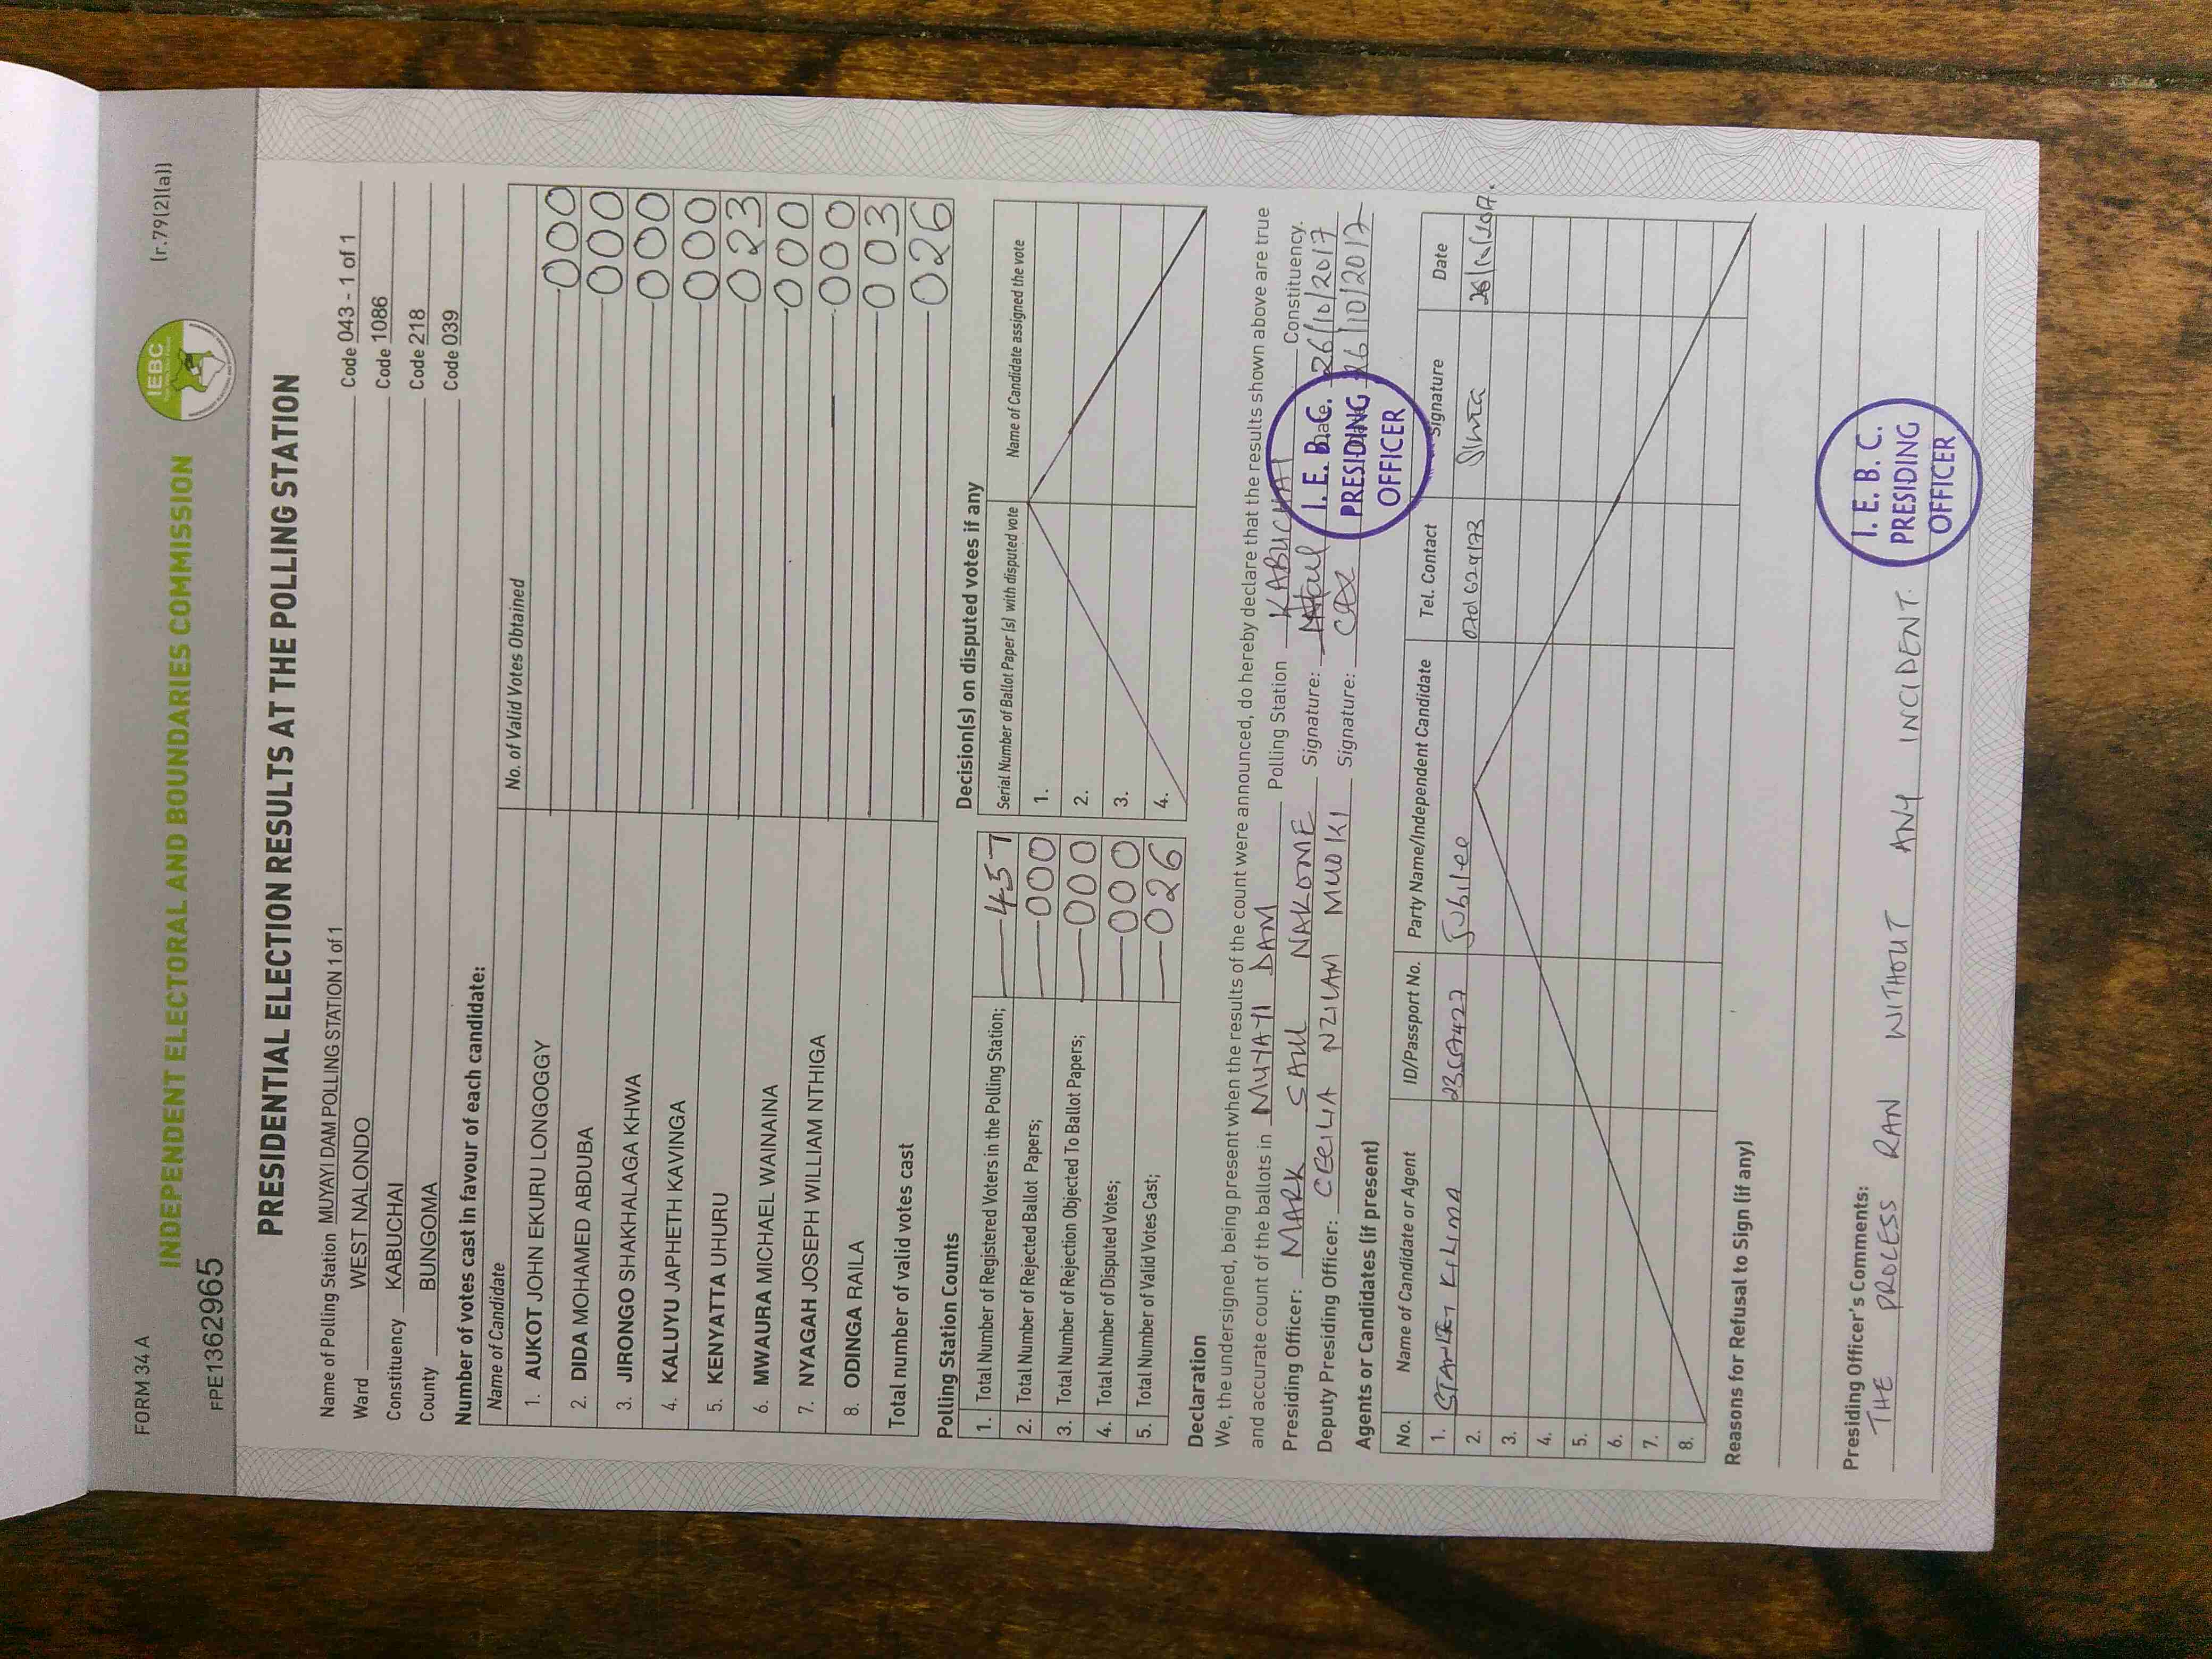 FORM 34 A
(r.79(2)(a))
IEBC
INDEPENDENT ELECTORAL AND BOUNDARIES COMMISSION
FPE1362965
PRESIDENTIAL ELECTION RESULTS AT THE POLLING STATION
Name of Polling Station MUYAYI DAM POLLING STATION 1 of 1 Code 043 - 1 of 1
Ward WEST NALONDO Code 1086
Constituency KABUCHAI Code 218
County BUNGOMA Code 039
Number of votes cast in favour of each candidate:
Name of Candidate No. of Valid Votes Obtained
1. AUKOT JOHN EKURU LONGOGGY 000
2. DIDA MOHAMED ABDUBA 000
3. JIRONGO SHAKHALAGA KHWA 000
4. KALUYU JAPHETH KAVINGA 000
5. KENYATTA UHURU 023
6. MWAURA MICHAEL WAINAINA 000
7. NYAGAH JOSEPH WILLIAM NTHIGA 000
8. ODINGA RAILA 003
Total number of valid votes cast 026
Polling Station Counts
1. Total Number of Registered Voters in the Polling Station; 457
2. Total Number of Rejected Ballot Papers; 000
3. Total Number of Rejection Objected To Ballot Papers; 000
4. Total Number of Disputed Votes; 000
5. Total Number of Valid Votes Cast; 026
Decision(s) on disputed votes if any
Serial Number of Ballot Paper (s) with disputed vote Name of Candidate assigned the vote
1.
2.
3.
4.
Declaration
We, the undersigned, being present when the results of the count were announced, do hereby declare that the results shown above are true
and accurate count of the ballots in MUYAYI DAM Polling Station KABUCHAI Constituency.
Presiding Officer: MARK SAUL NAKOME Signature: Date 26/10/2017
Deputy Presiding Officer: CECILIA NZILANI MWOKI Signature: 26/10/2017
I. E. B. C.
PRESIDING
OFFICER
Agents or Candidates (if present)
No. Name of Candidate or Agent ID/Passport No. Party Name/Independent Candidate Tel. Contact Signature Date
1. STANLEY KILIMA Jubilee 26/10/2017.
2.
3.
4.
5.
6.
7.
8.
Reasons for Refusal to Sign (if any)
Presiding Officer's Comments:
THE PROCESS RAN WITHOUT ANY INCIDENT.
I. E. B. C.
PRESIDING
OFFICER